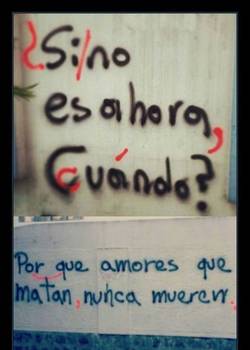 ¿Si/no
es ahora,
Cuándo?
Por que amores que
matan, nunca mueren.